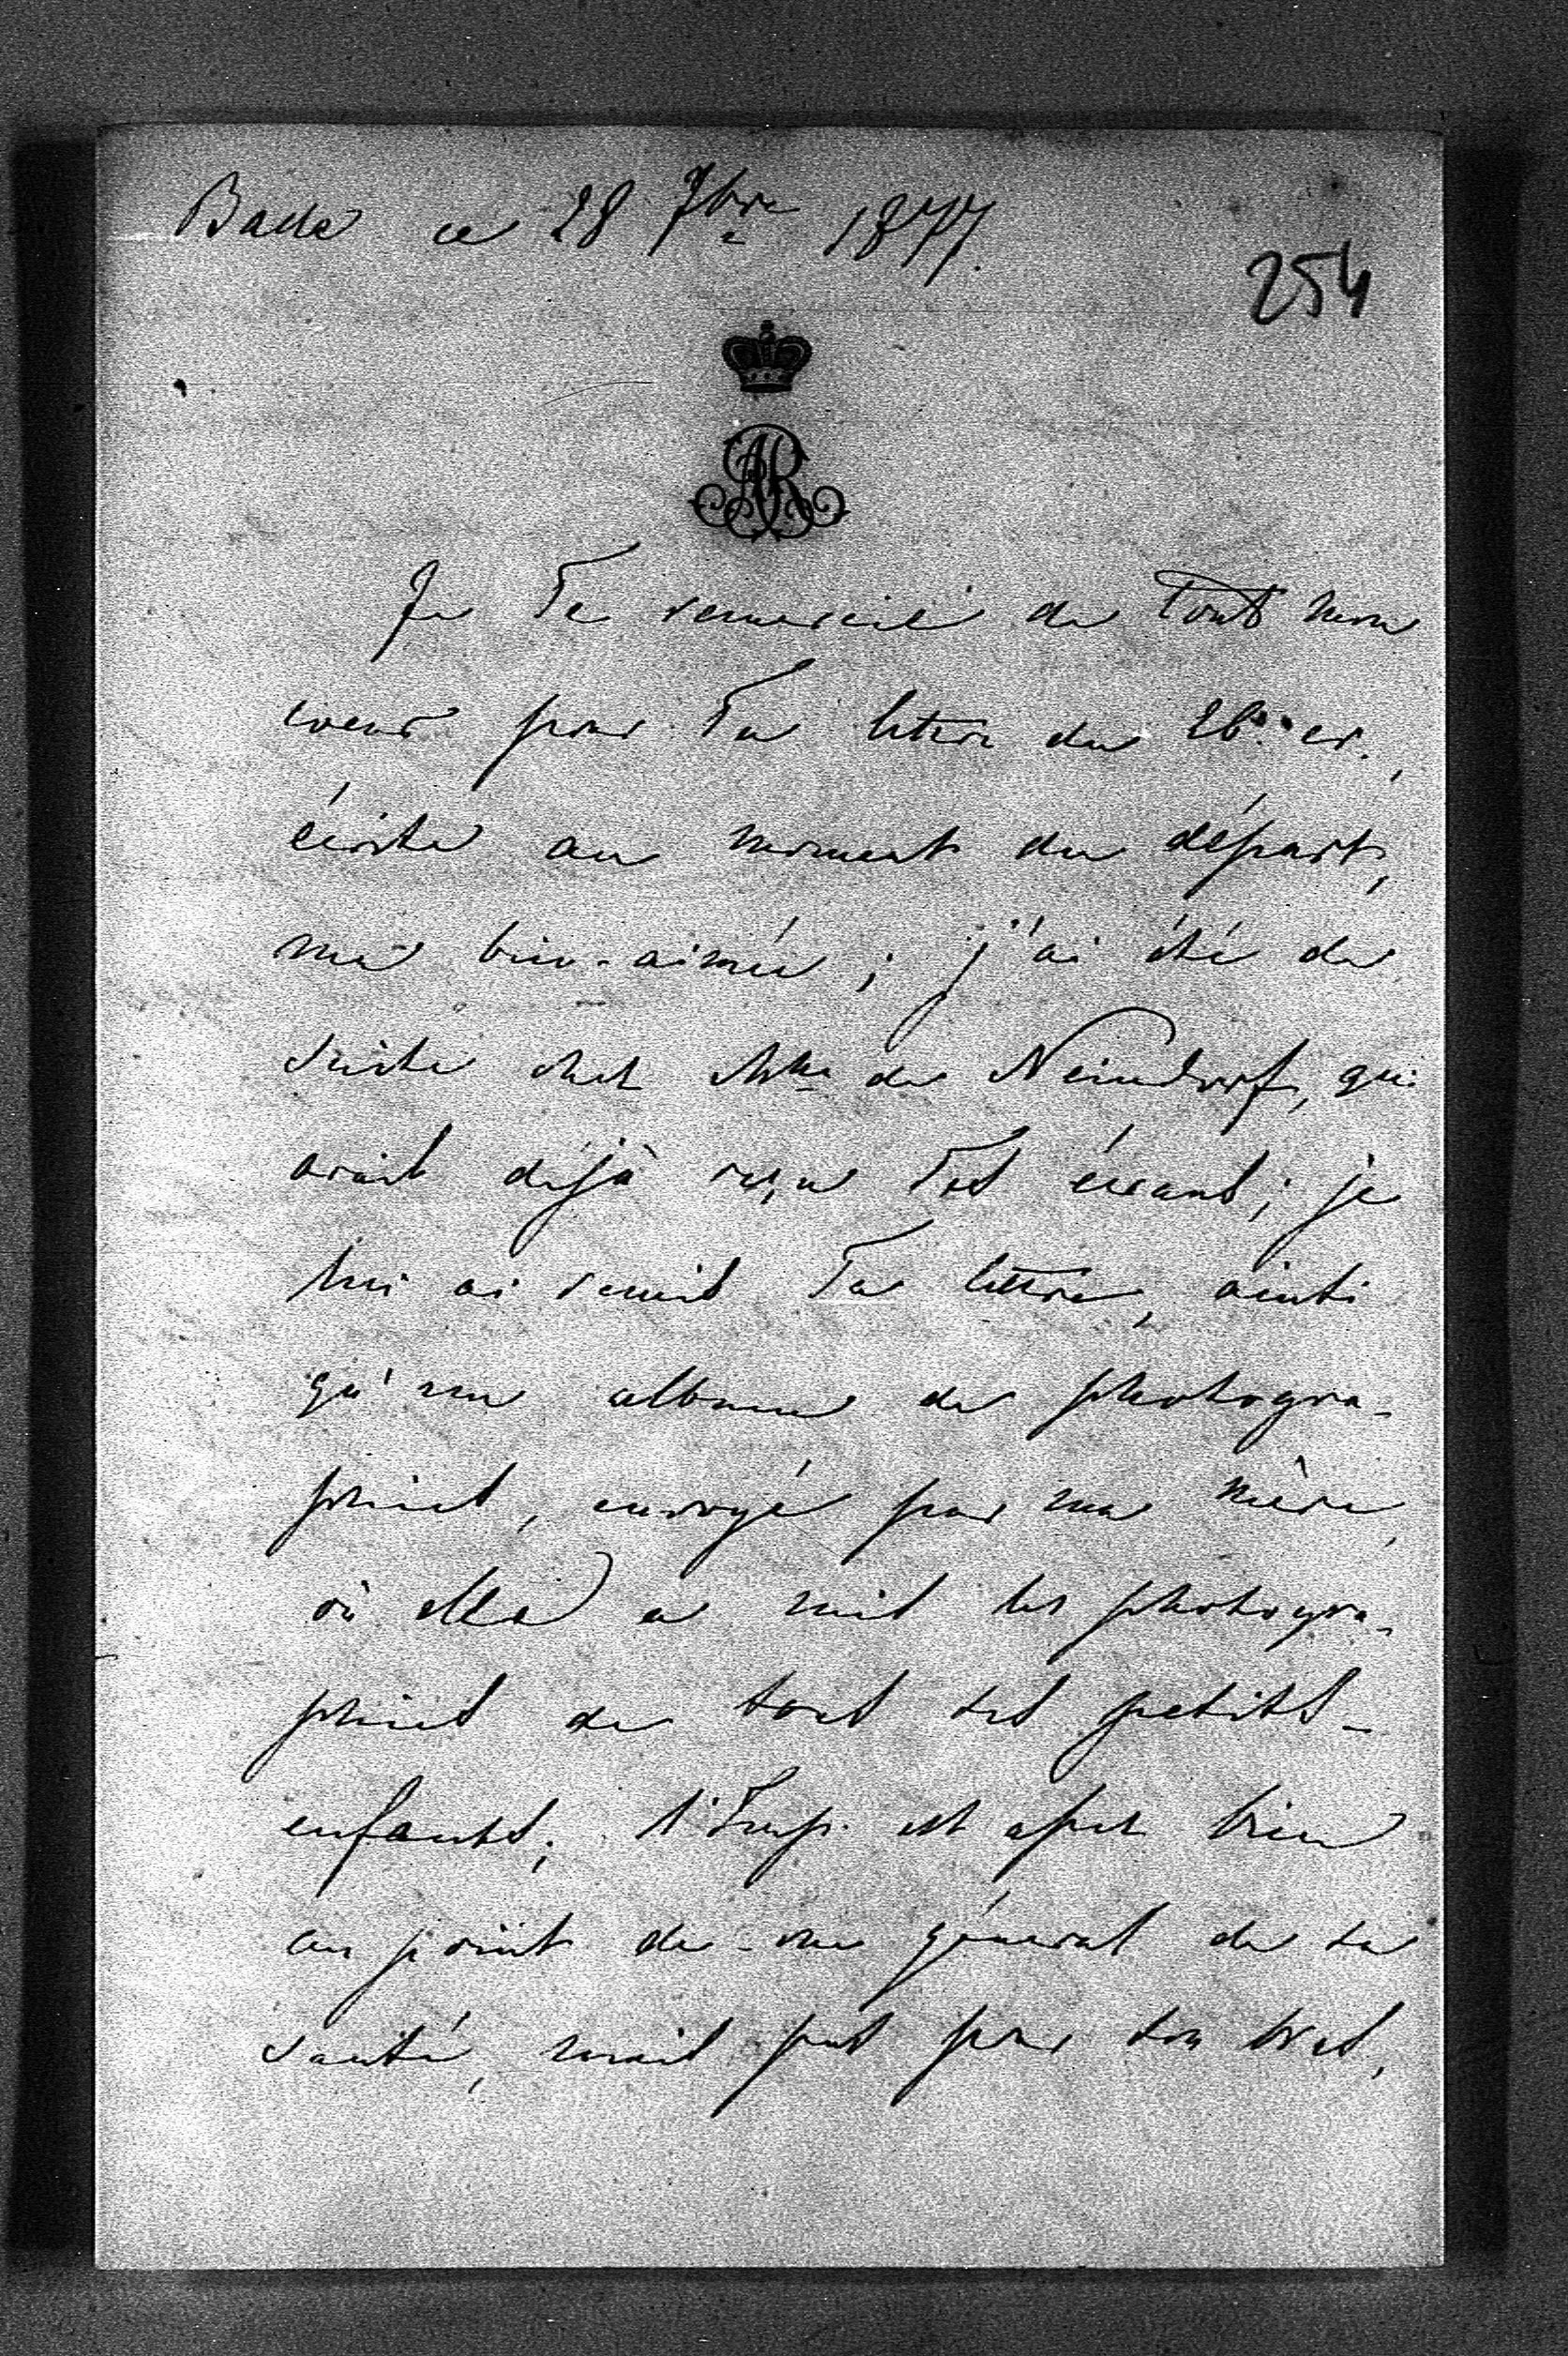 Bade ce 28 7bre 1877.
254
AR
Je Te remercie de Tout mon
coeur pour Ta lettre du 26. cr.,
écrite au moment du départ,
ma bien-aimée; j'ai été de
suite chez Mme de Neindorf, qui
avait déjà reçu Tes écrans; je
lui ai remis Ta lettre, ainsi
qu'un album de photogra-
phies, envoyé par ma mère,
où elle a mis les photogra-
phies de tous ses petits-
enfants; l'Emp. est assez bien
au point de-vue général de sa
santé, mais pas pour son bras,